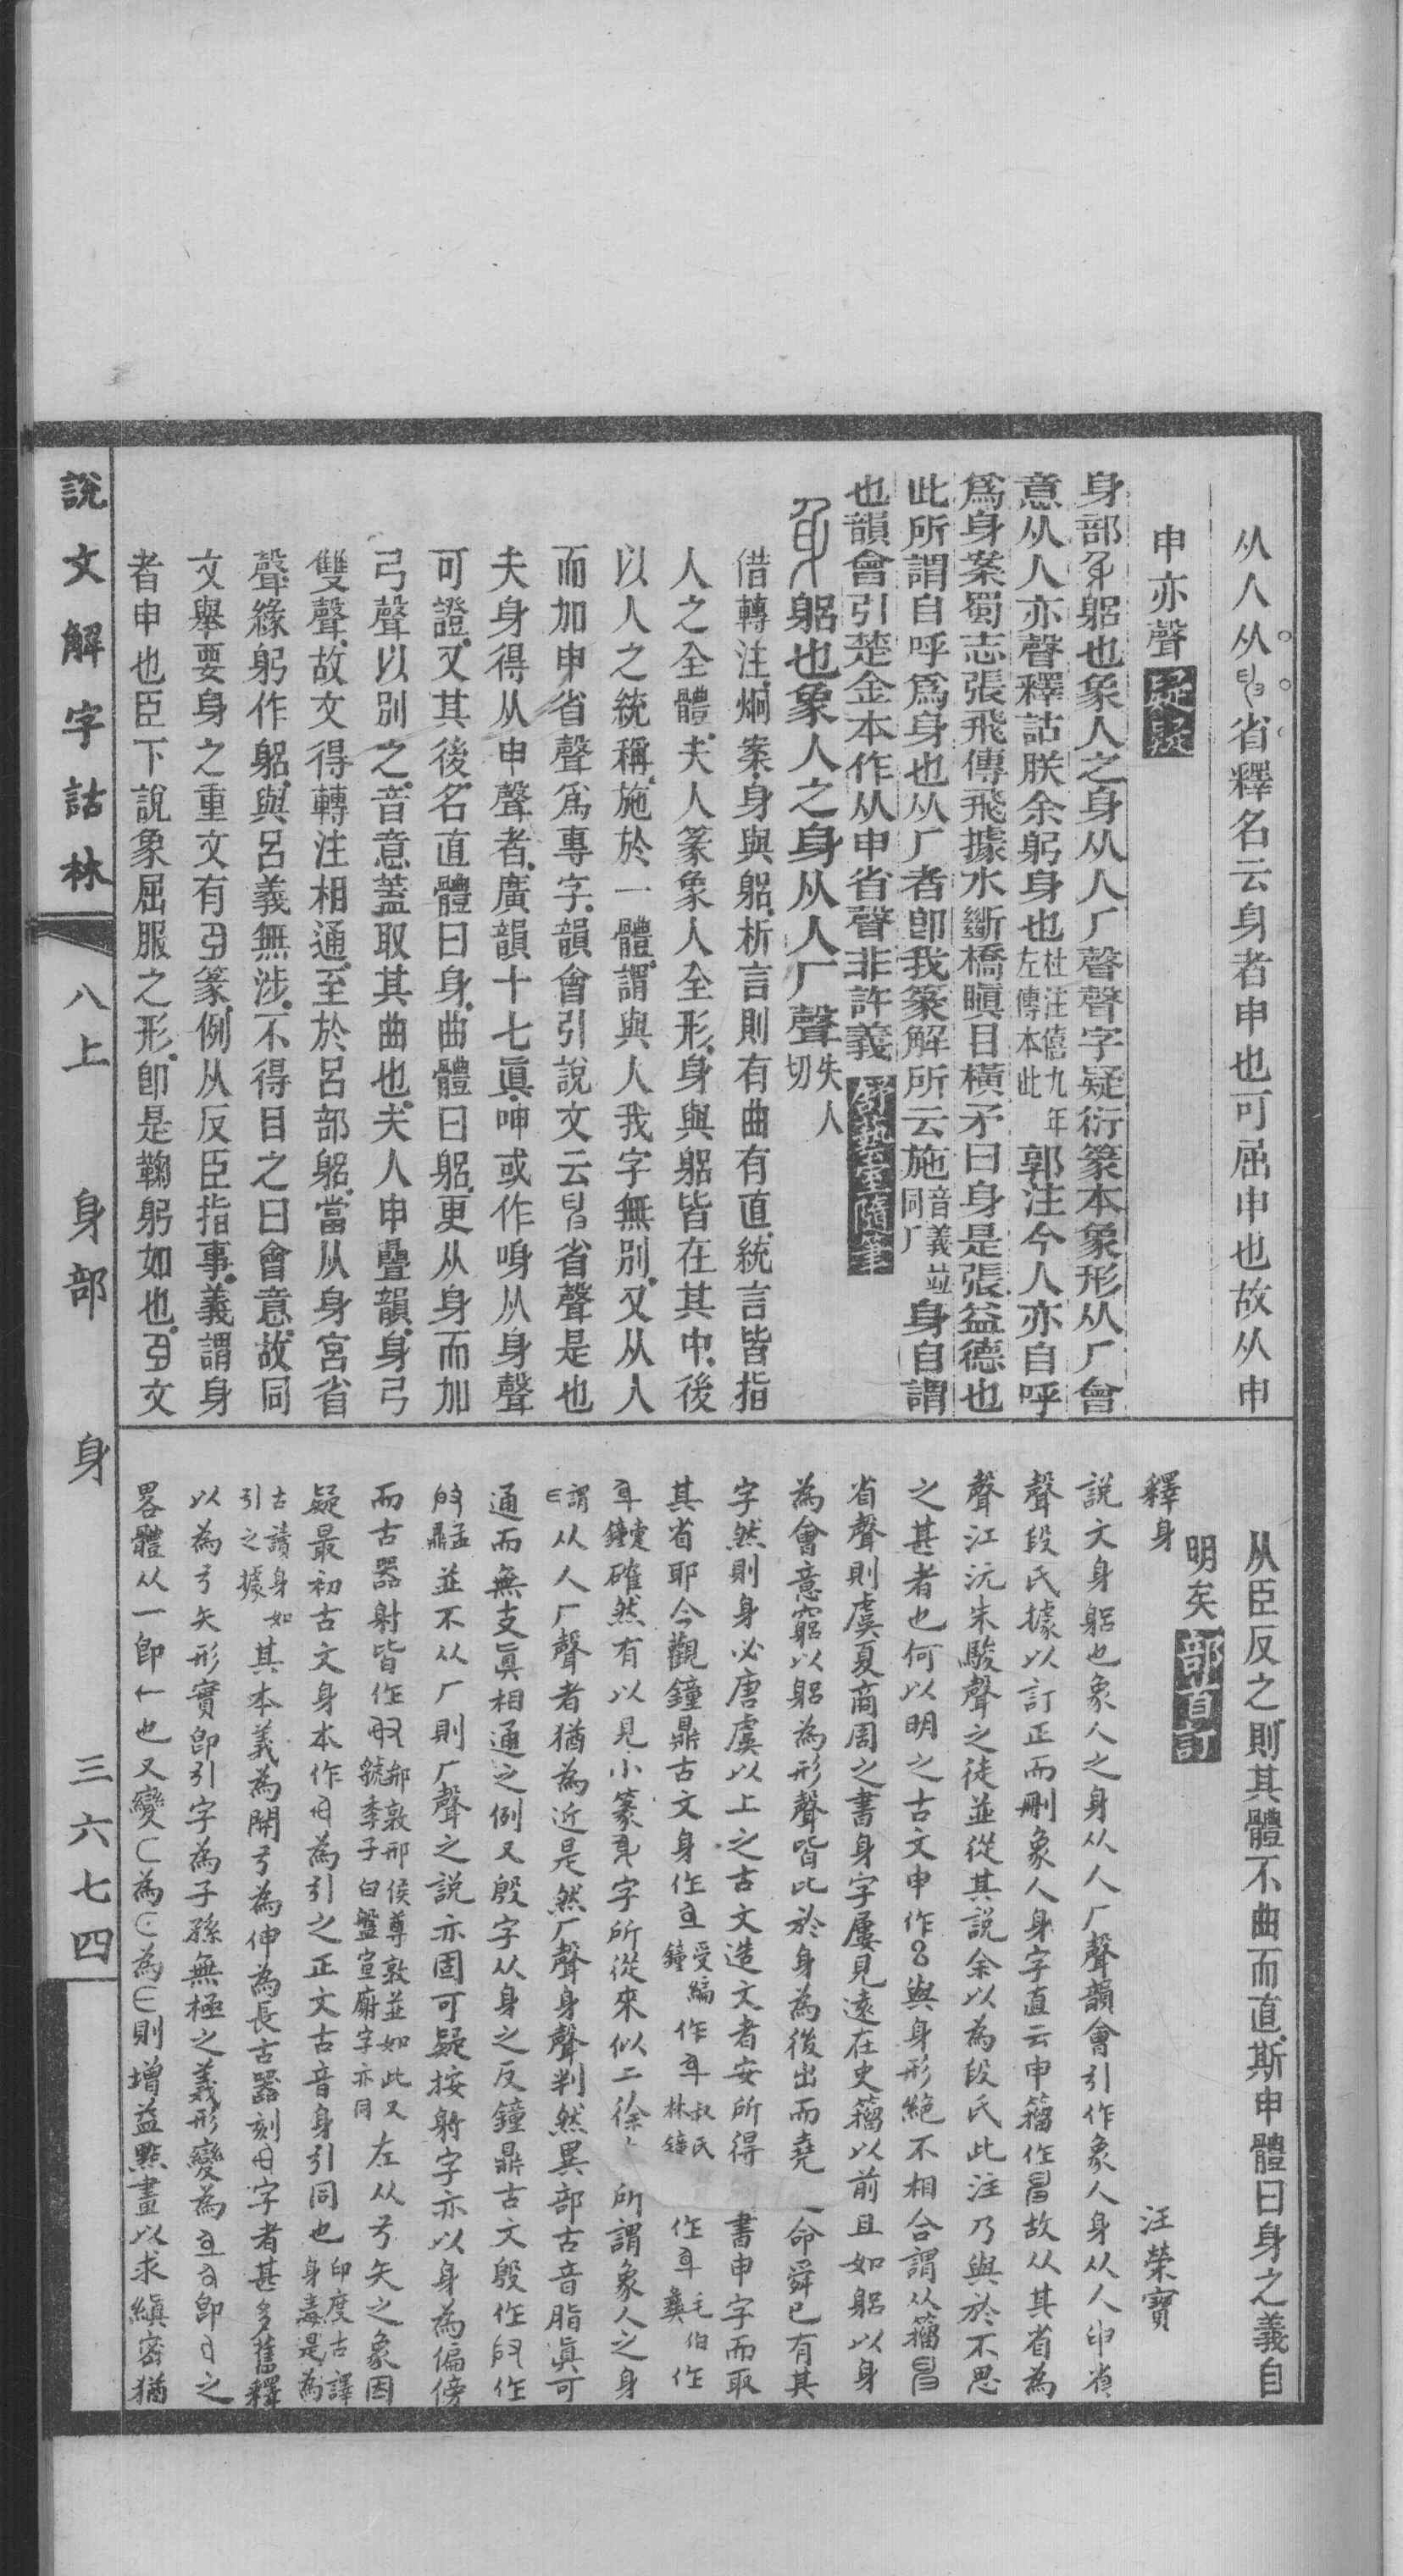 从人从省釋名云身者申也可屈申也故从申
申亦聲 疑疑
身部躳也象人之身从人厂聲聲字疑衍篆本象形从厂會
意从人亦聲釋詁朕余躬身也杜注僖九年左傳本此郭注今人亦自呼
爲身案蜀志張飛傳飛據水斷橋瞋目橫矛曰身是張益德也
此所謂自呼爲身也从厂者卽我篆解所云施音義竝同厂身自謂
也韻會引楚金本作从申省聲非許義 舒埶室隨筆
躳也象人之身从人厂聲失人切
借轉注炯案身與躳析言則有曲有直統言皆指
人之全體夫人篆象人全形身與躳皆在其中後
以人之統稱施於一體謂與人我字無別又从人
而加申省聲爲專字韻會引說文云省聲是也
夫身得从申聲者廣韻十七眞呻或作㖗从身聲
可證又其後名直體曰身曲體曰躳更从身而加
弓聲以別之音意蓋取其曲也夫人申疊韻身弓
雙聲故文得轉注相通至於呂部躳當从身宮省
聲緣躬作躳與呂義無涉不得目之曰會意故同
文舉要身之重文有篆例从反臣指事義謂身
者申也臣下說象屈服之形卽是鞠躬如也文
从臣反之則其體不曲而直斯申體曰身之義自
明矣 部首訂
釋身 汪榮寶
說文身躳也象人之身从人厂聲韻會引作象人身从人申省
聲段氏據以訂正而刪象人身字直云申籀作㫑故从其省為
聲江沅朱駿聲之徒並從其說余以為段氏此注乃與於不思
之甚者也何以明之古文申作與身形絕不相合謂从籀㫑
省聲則虞夏商周之書身字屢見遠在史籀以前且如躳以身
為會意窮以躳為形聲皆比於身為後出而堯命舜已有其
字然則身必唐虞以上之古文造文者安所得書申字而取
其省耶今觀鐘鼎古文身作受編鐘作叔氏林鐘作毛伯彝作
鐘確然有以見小篆字所從來似二徐所謂象人之身
謂从人厂聲者猶為近是然厂聲身聲判然異部古音脂眞可
通而無支眞相通之例又殷字从身之反鐘鼎古文殷作作
盂鼎並不从厂則厂聲之說亦固可疑按射字亦以身為偏傍
而古器射皆作䣄敦邢侯尊敦並如此又虢季子白盤宣廟字亦同左从弓矢之象因
疑最初古文身本作為引之正文古音身引同也印度古譯身毒是為
古讀身如引之據其本義為開弓為伸為長古器刻字者甚多舊釋
以為弓矢形實卽引字為子孫無極之義形變為卽之
畧體从一卽也又變為為則增益點畫以求縝密猶
說文解字詁林 八上 身部 身 三六七四